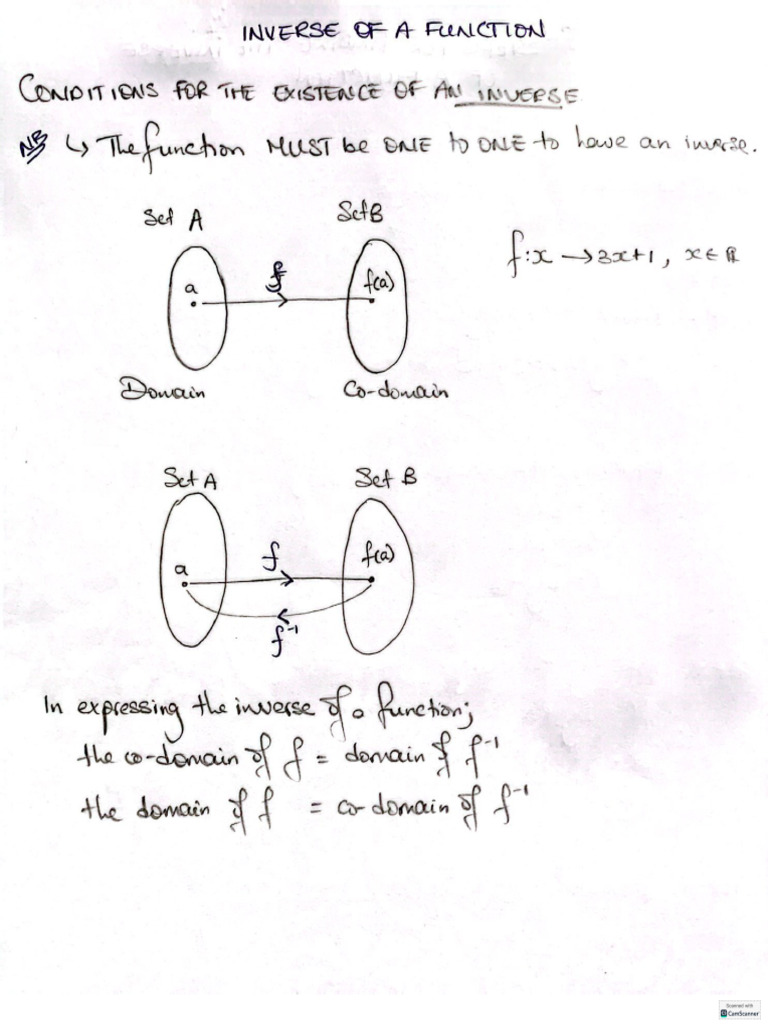 INVERSE OF A FUNCTION
CONDITIONS FOR THE EXISTENCE OF AN INVERSE
NB ↳ The function MUST be ONE to ONE to have an inverse.
Set A
Set B
f:x → 3x+1, x ∈ ℝ
a
f
f(a)
Domain
Co-domain
Set A
Set B
a
f
f(a)
f⁻¹
In expressing the inverse of a function;
the co-domain of f = domain of f⁻¹
the domain of f = co-domain of f⁻¹
Scanned with
CamScanner